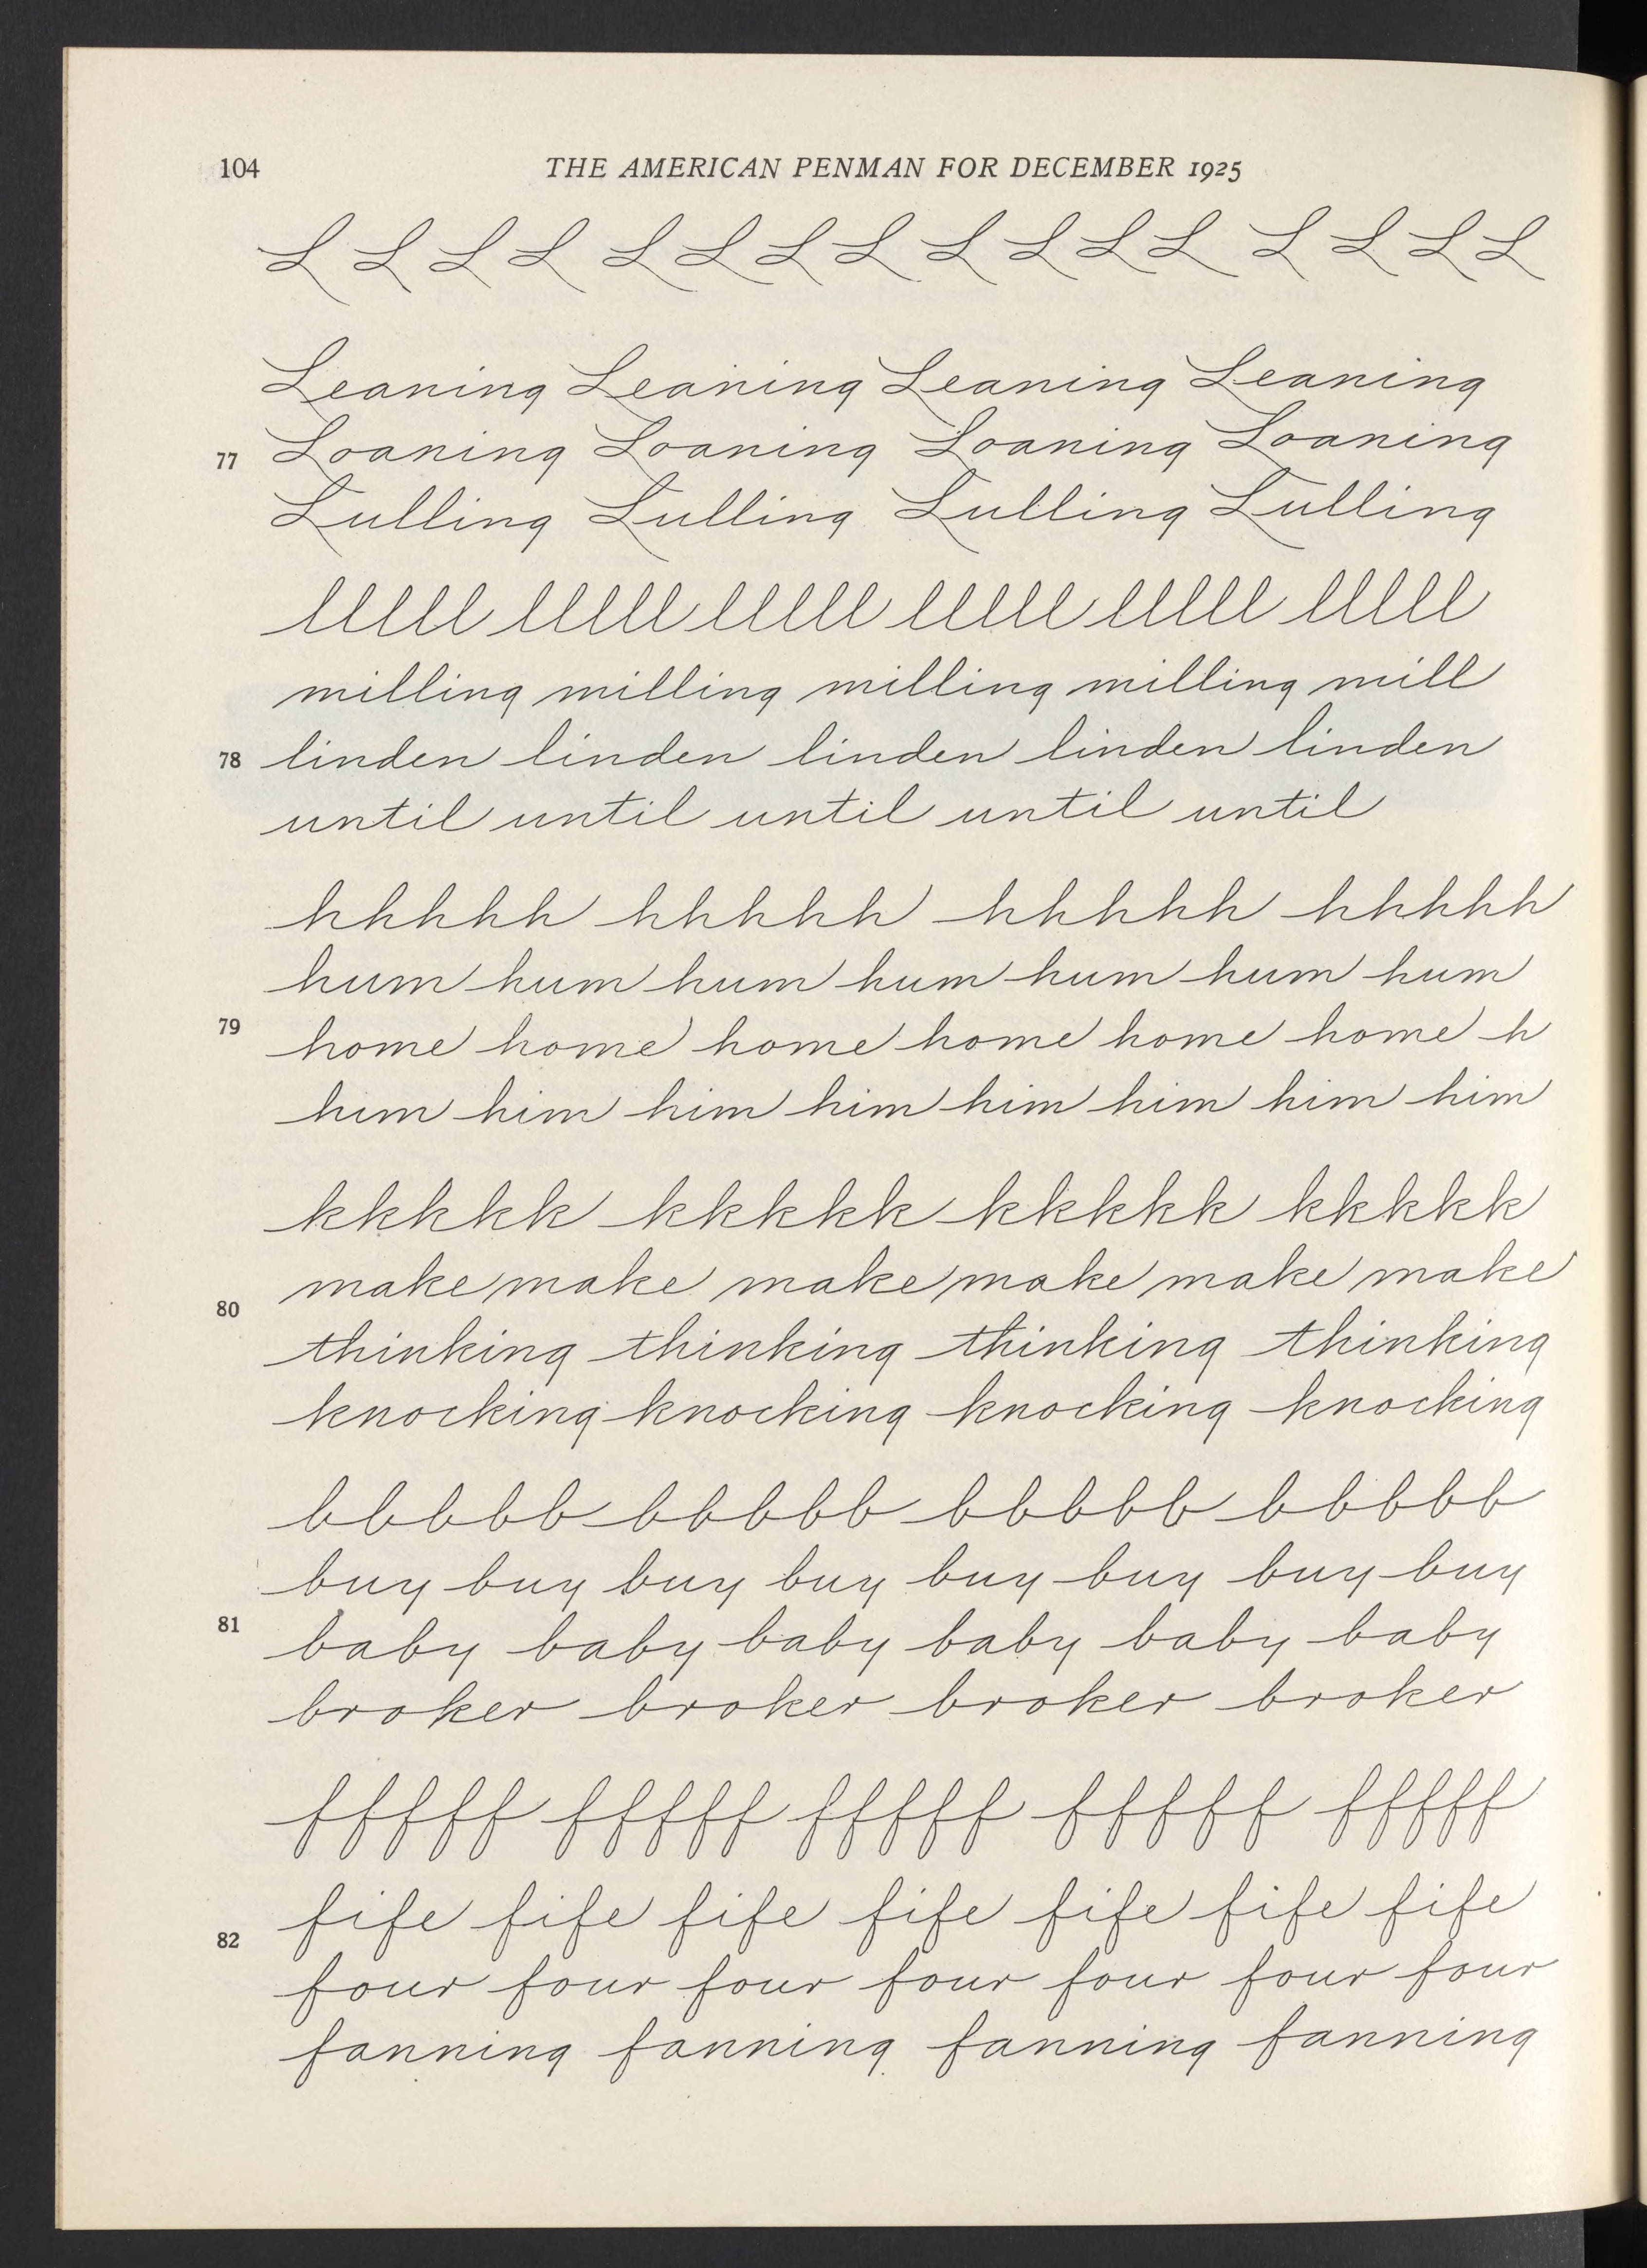 104 THE AMERICAN PENMAN FOR DECEMBER 1925
L L L L L L L L L L L L L L L L
Leaning Leaning Leaning Leaning
77 Loaning Loaning Loaning Loaning
Lulling Lulling Lulling Lulling
lllll lllll lllll lllll lllll lllll
milling milling milling milling mill
78 linden linden linden linden linden
until until until until until
hhhhh hhhhh hhhhh hhhhh
hum hum hum hum hum hum hum
79 home home home home home home h
him him him him him him him him
kkkkk kkkkk kkkkk kkkkk
make make make make make make
80
thinking thinking thinking thinking
knocking knocking knocking knocking
bbbbb bbbbb bbbbb bbbbb
buy buy buy buy buy buy buy buy
81 baby baby baby baby baby baby
broker broker broker broker
fffff fffff fffff fffff fffff
fife fife fife fife fife fife fife
82
four four four four four four four
fanning fanning fanning fanning